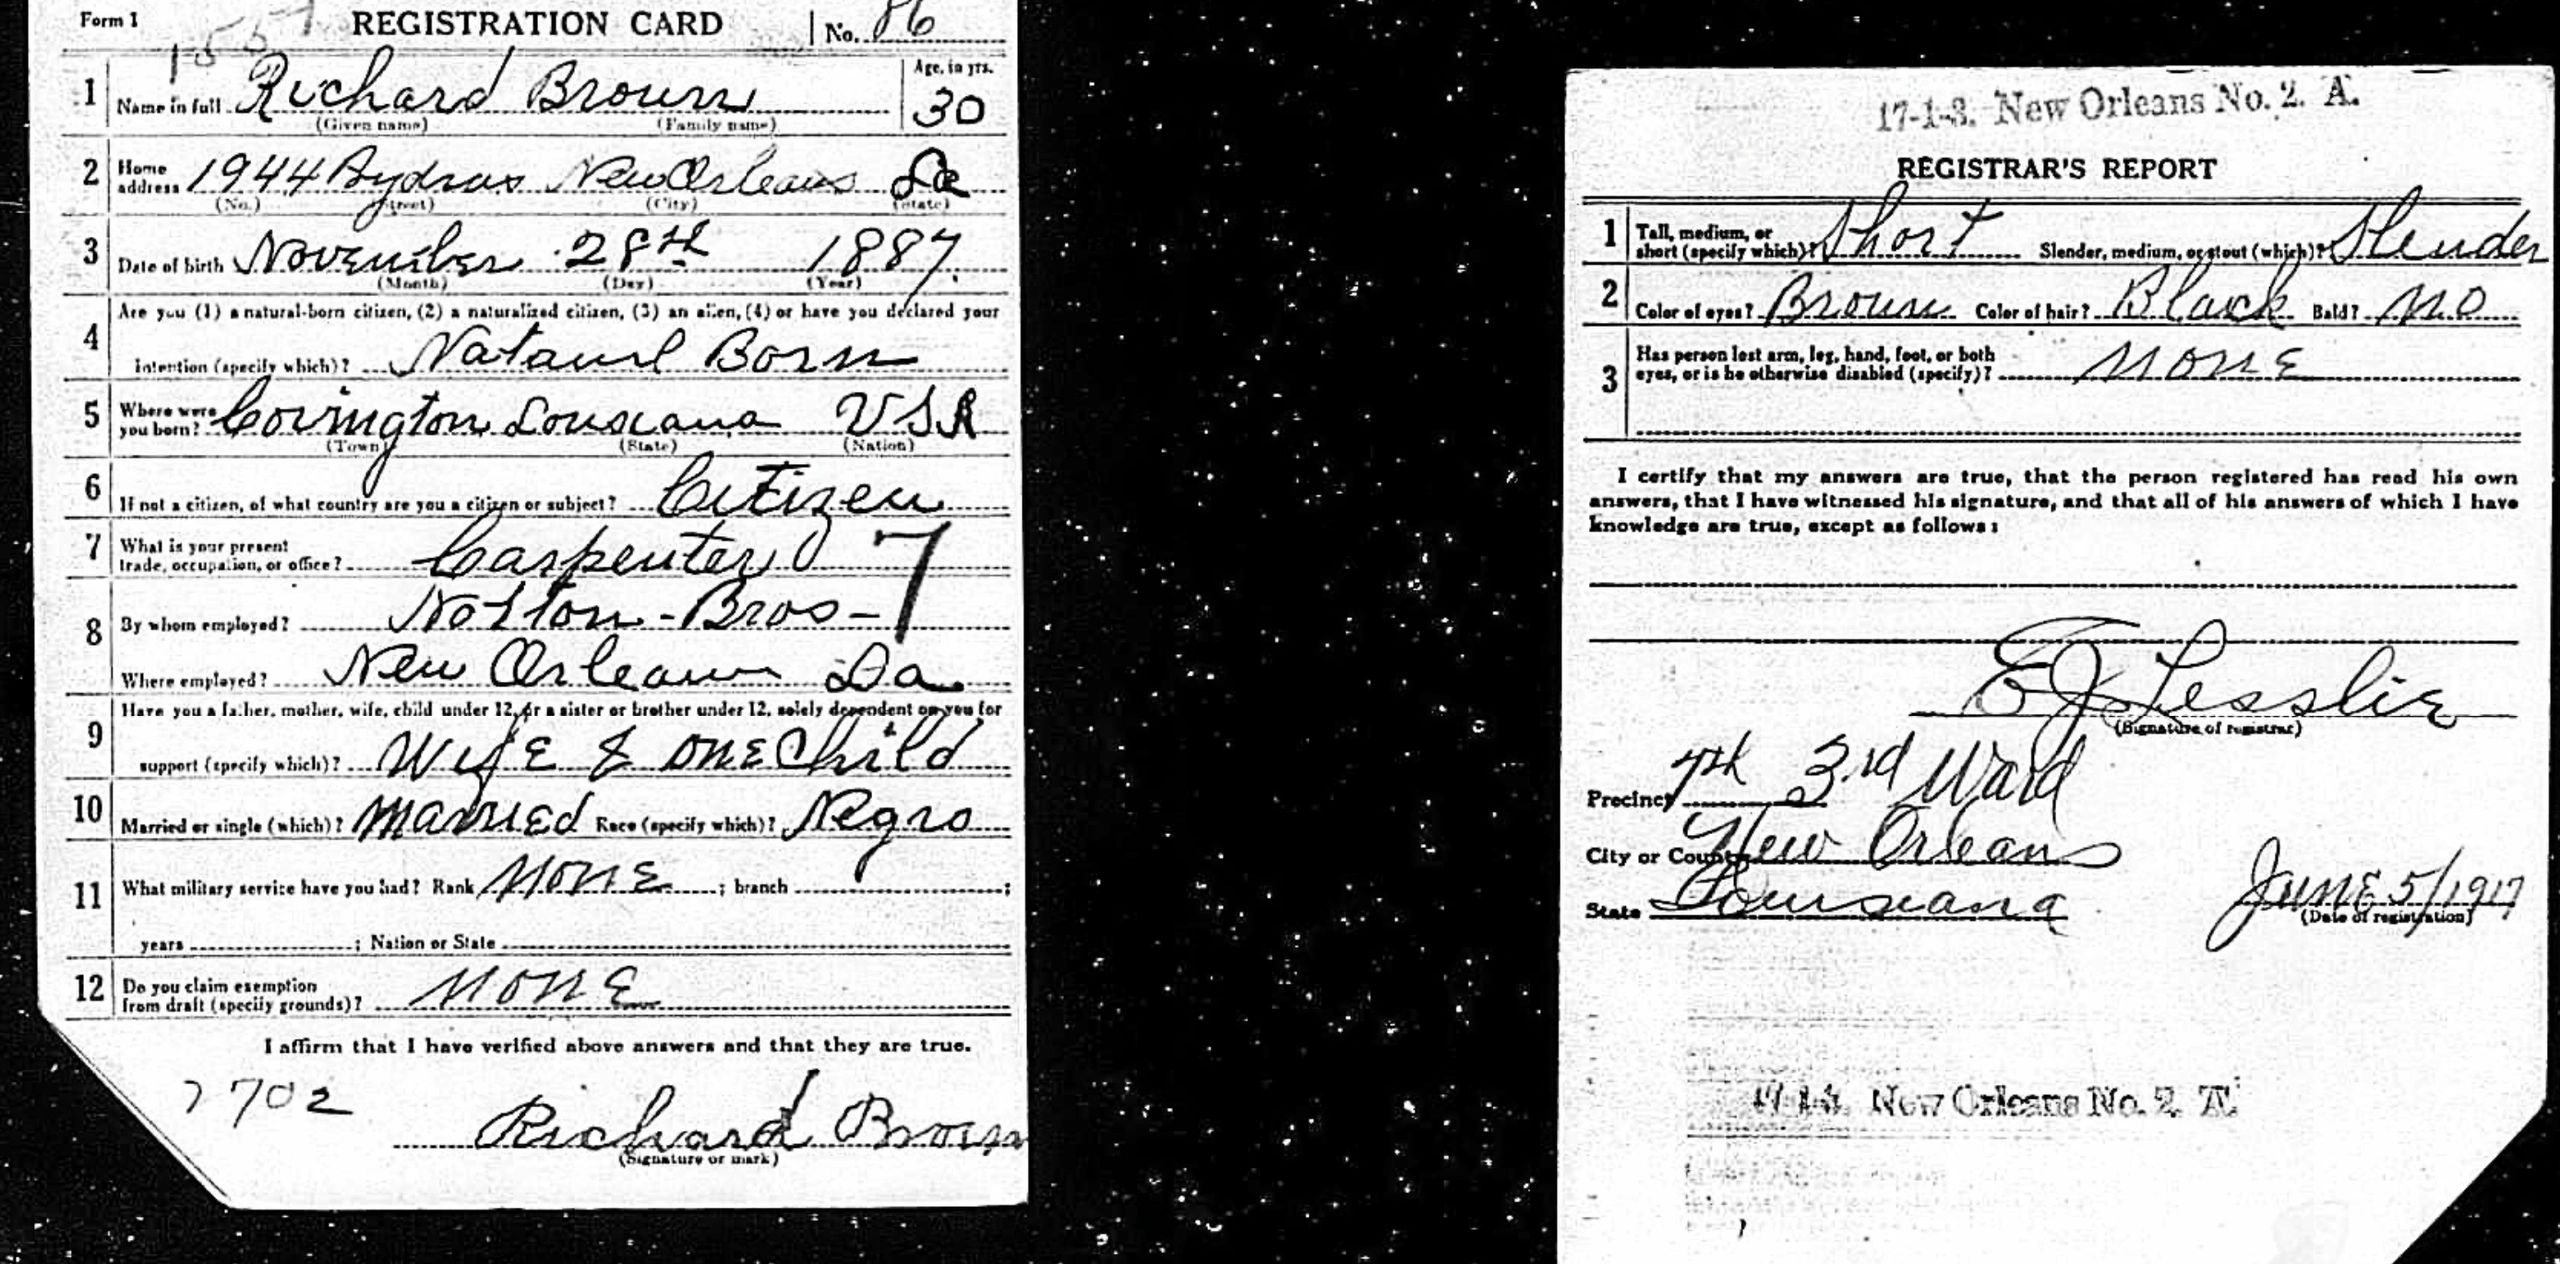 Form 1
1557
REGISTRATION CARD
No. 86
1 Name in full Richard Brown
(Given name) (Family name)
Age, in yrs.
30
2 Home address 1944 Pydras New Orleans La
(No.) (Street) (City) (State)
3 Date of birth November 28th 1887.
(Month) (Day) (Year)
4 Are you (1) a natural-born citizen, (2) a naturalized citizen, (3) an alien, (4) or have you declared your
intention (specify which)? Nataurl Born
5 Where were you born? Covington Lousiana USA
(Town) (State) (Nation)
6 If not a citizen, of what country are you a citizen or subject? Citizen
7 What is your present trade, occupation, or office? Carpenter 7
8 By whom employed? Notton-Bros-
Where employed? New Orleans La
9 Have you a father, mother, wife, child under 12, or a sister or brother under 12, solely dependent on you for
support (specify which)? Wife & one Child
10 Married or single (which)? Married Race (specify which)? Negro
11 What military service have you had? Rank None ; branch ;
years ; Nation or State
12 Do you claim exemption from draft (specify grounds)? None
I affirm that I have verified above answers and that they are true.
2702
Richard Brown
(Signature or mark)
17-1-3. New Orleans No. 2. A.
REGISTRAR'S REPORT
1 Tall, medium, or short (specify which)? Short Slender, medium, or stout (which)? Slender
2 Color of eyes? Brown Color of hair? Black Bald? No
3 Has person lost arm, leg, hand, foot, or both eyes, or is he otherwise disabled (specify)? None
I certify that my answers are true, that the person registered has read his own
answers, that I have witnessed his signature, and that all of his answers of which I have
knowledge are true, except as follows:
E J Lesslie
(Signature of registrar)
Precinct 7th 3rd Ward
City or County New Orleans
State Lousiana
June 5/1917
(Date of registration)
17-1-3. New Orleans No. 2. A.